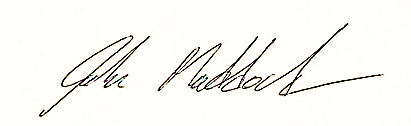 John Maddock